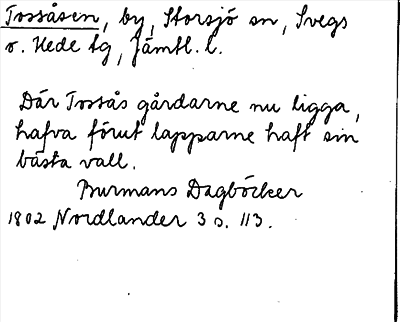 Tossåsen, by, Storsjö sn, Svegs
o. Hede tg, Jämtl. l.
Där Tossås gårdarne nu ligga,
hafva förut lapparne haft sin
bästa vall.
Burmans Dagböcker
1802 Nordlander 3 s. 113.